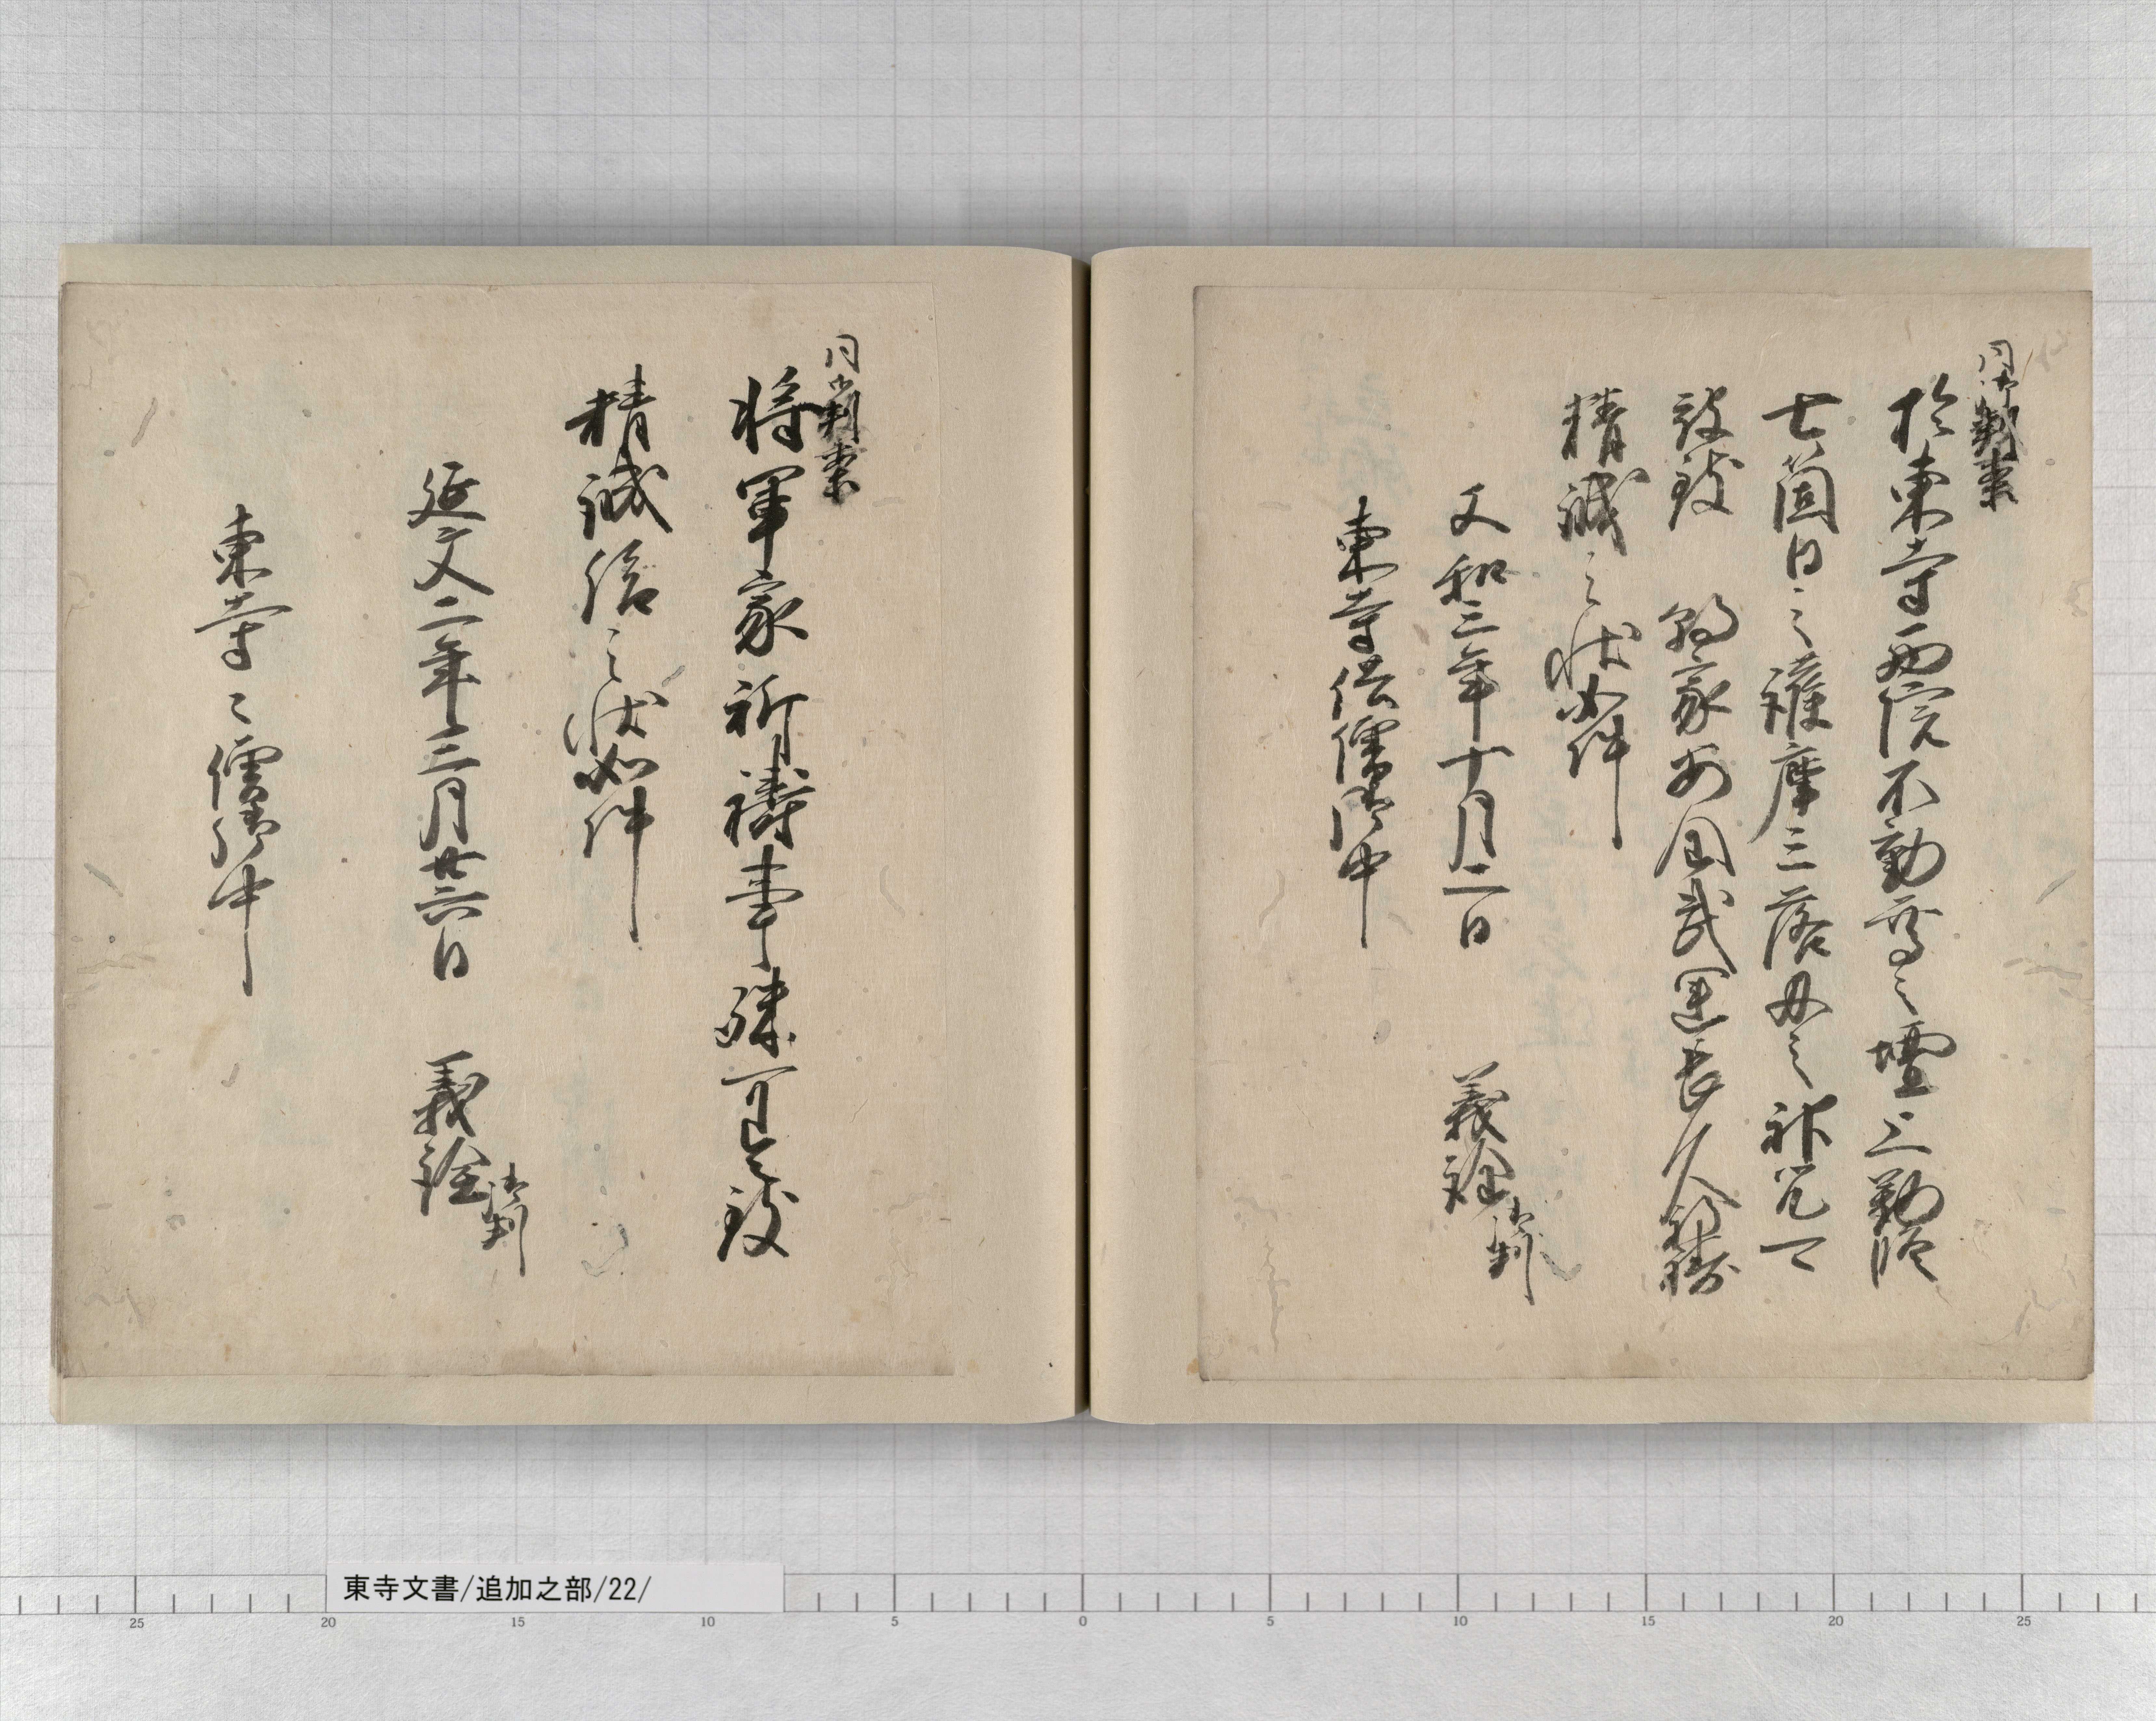 同御判案
於東寺西院不動尊之壇上勤修
七箇日之護摩三落叉之神咒可
被致 朝家安全武運長久祈祷
精誠之状如件
文和三年十月二日 義詮 御判
東寺供僧御中
同御判案
将軍家祈祷事殊可令致
精誠給之状如件
延文二年三月廿六日 義詮 御判
東寺々僧御中
東寺文書/追加之部/22/
25 20 15 10 5 0 5 10 15 20 25